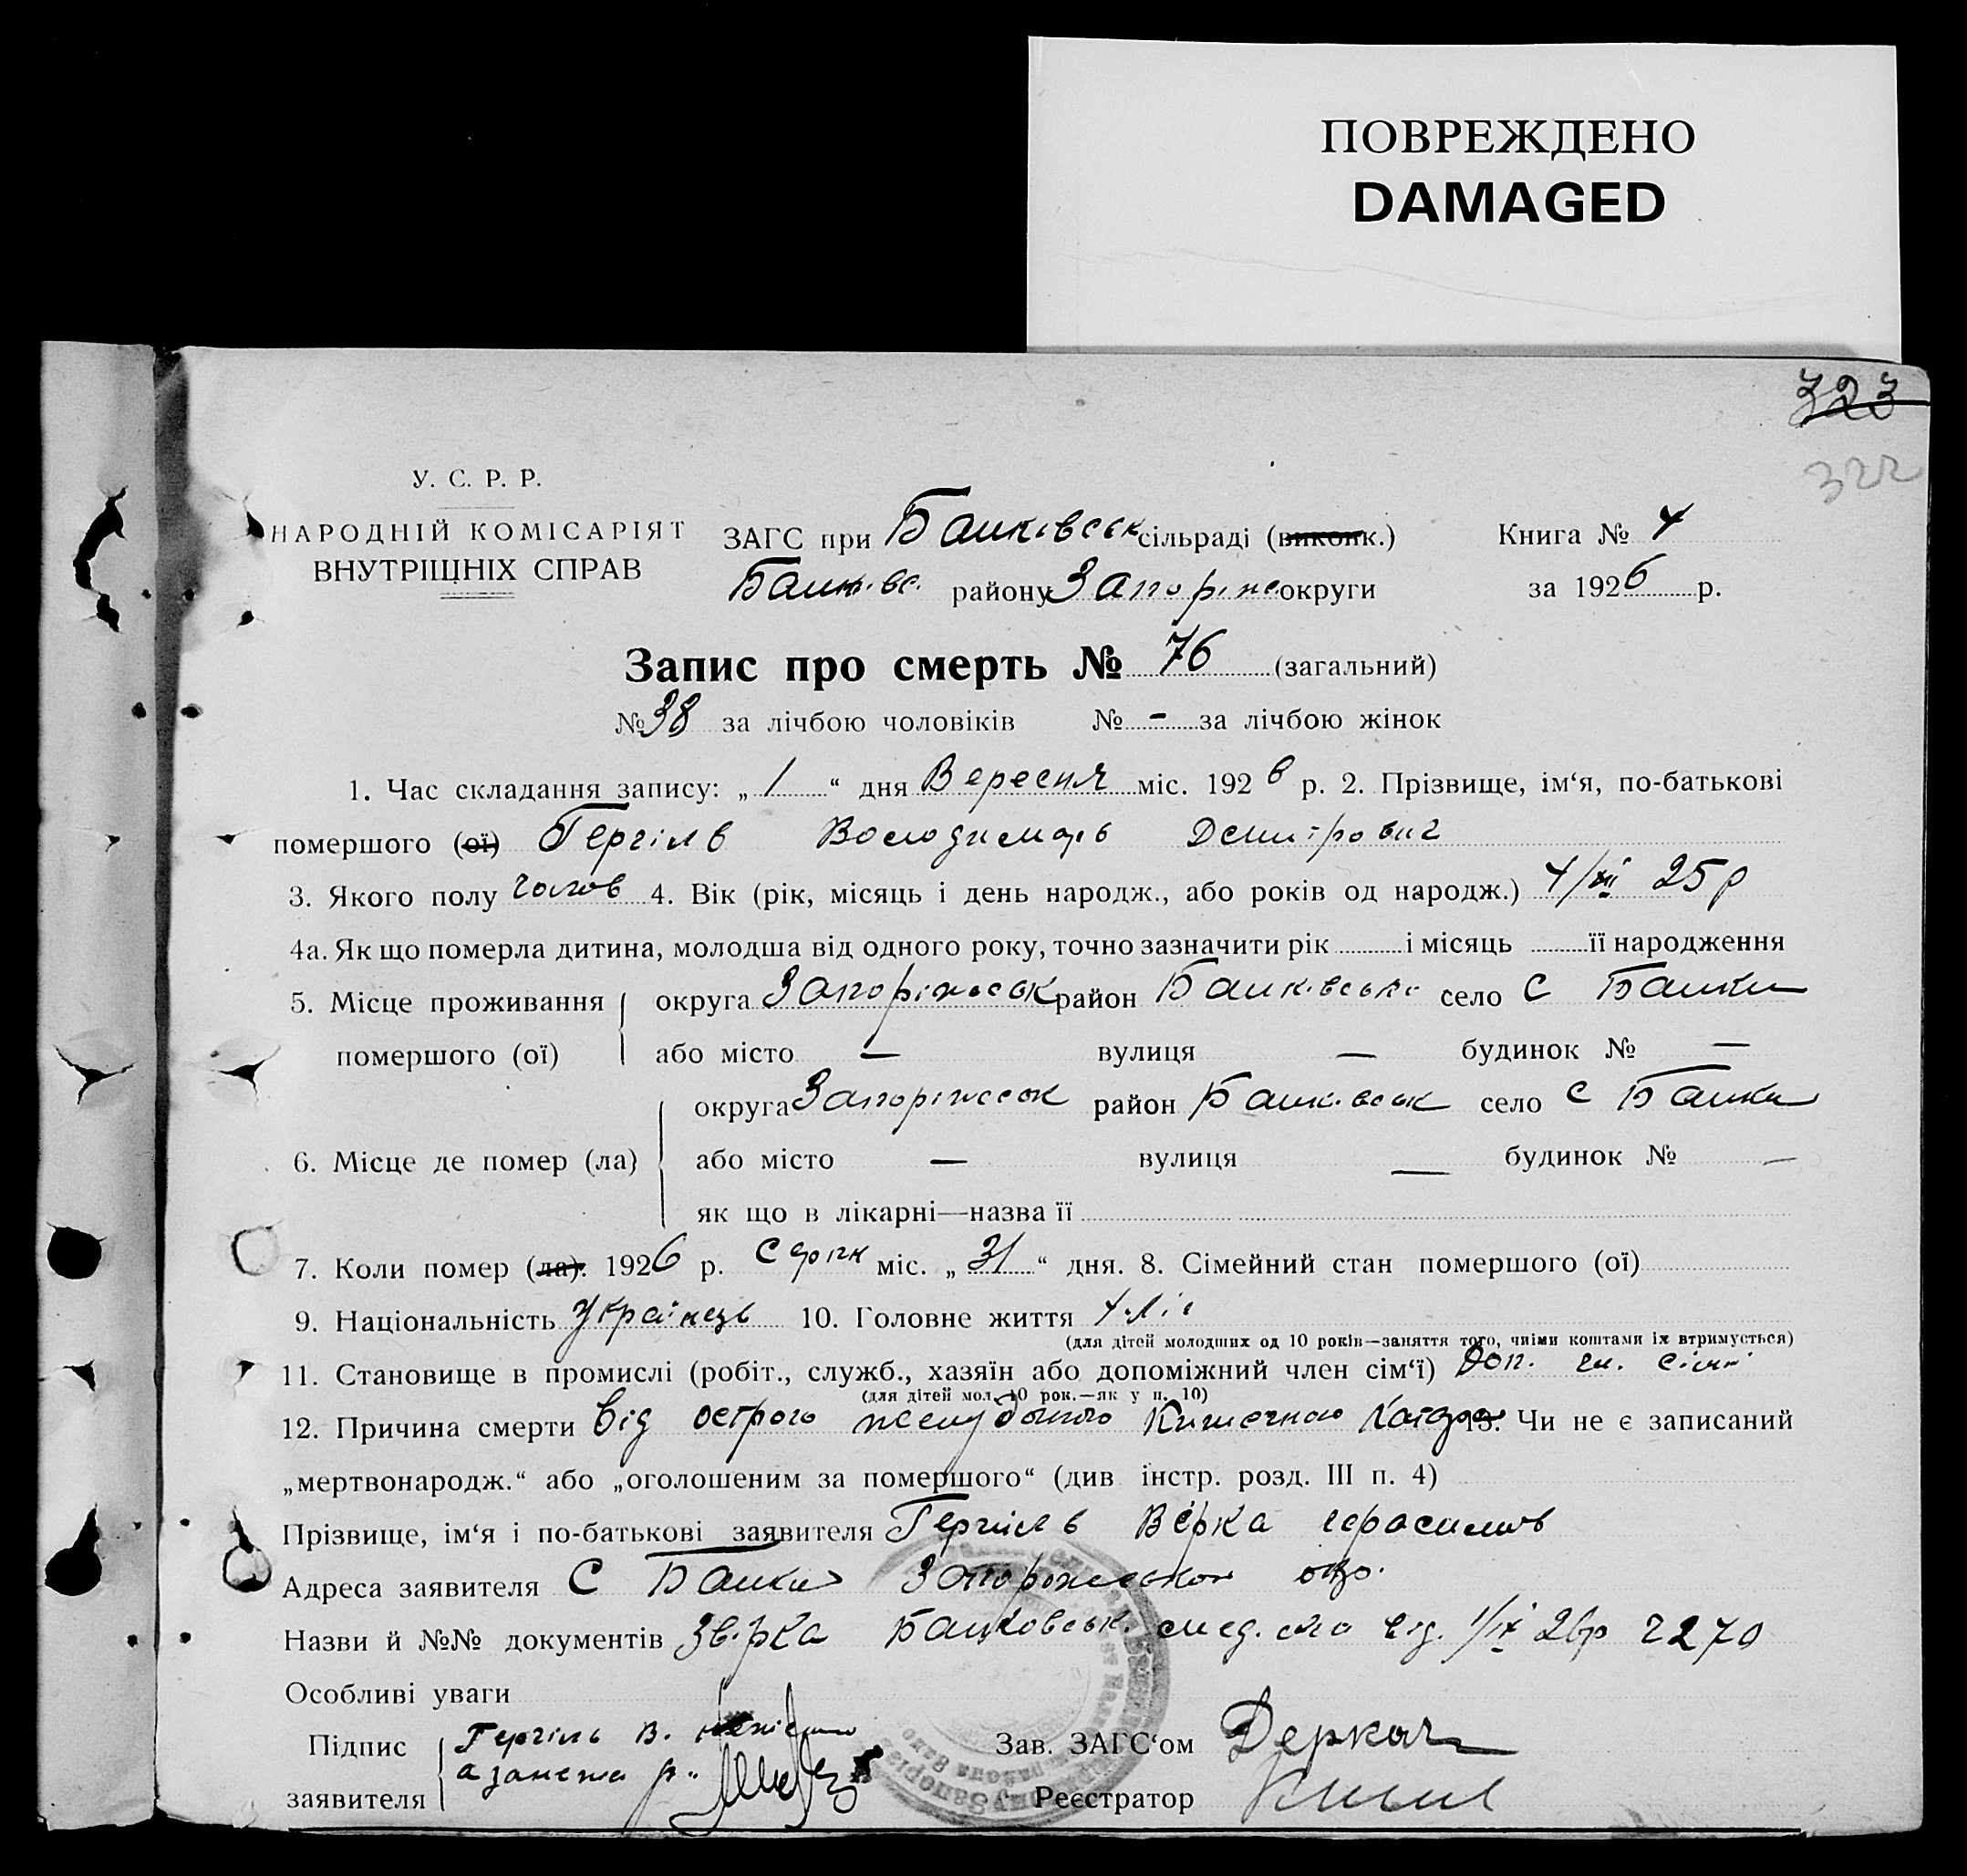 ПОВРЕЖДЕНО
DAMAGED
323
322
У. С. Р. Р.
НАРОДНІЙ КОМІСАРІЯТ
ВНУТРІШНІХ СПРАВ
ЗАГС при Балківськ сільраді (виконк.)
Книга № 4
Балківс. району Запоріж округи
за 1926 р.
Запис про смерть № 76 (загальний)
№ 38 за лічбою чоловіків № - за лічбою жінок
1. Час складання запису: „ 1 “ дня Вересня міс. 1926 р. 2. Прізвище, ім‘я, по-батькові
помершого (ої) Гергіль Володимирь Дмитрович
3. Якого полу чолов 4. Вік (рік, місяць і день народж., або років од народж.) 4/XII 25 р
4а. Як що померла дитина, молодша від одного року, точно зазначити рік і місяць її народження
5. Місце проживання округа Запоріжськ район Балківськ село С Балки
помершого (ої) або місто — вулиця — будинок № —
округа Запоріжськ район Балківськ село С Балки
6. Місце де помер (ла) або місто — вулиця — будинок № —
як що в лікарні—назва її
7. Коли помер (ла). 1926 р. Серпн міс. „ 31 “ дня. 8. Сімейний стан помершого (ої)
9. Національність Українець 10. Головне життя
(для дітей молодших од 10 років—заняття того, чиїми коштами їх втримується)
11. Становище в промислі (робіт., служб., хазяїн або допоміжний член сім‘ї) доп. чл. сімї
(для дітей мол. 10 рок.—як у п. 10)
12. Причина смерти від острого желудочного Кишечного Катара 13. Чи не є записаний
„мертвонародж.“ або „оголошеним за помершого“ (див інстр. розд. III п. 4)
Прізвище, ім‘я і по-батькові заявителя Гергіль Вірка Герасимов
Адреса заявителя С Балки Запорожськой окр.
Назви й №№ документів Звірка Балковськ. від. 1/IX 26р 2270
Особливі уваги
Підпис Гергіль В.
заявителя
Зав. ЗАГС‘ом Деркач
Реєстратор